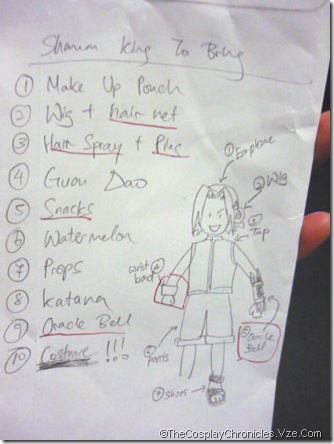 Shaman King To Bring
① Make Up Pouch
② Wig + hair net
③ Hair Spray + Pins
④ Guan Dao
⑤ Snacks
⑥ Watermelon
⑦ Props
⑧ Katana
⑨ Oracle Bell
⑩ Costume !!!
① Earphone
② Wig
③ Top
④ wrist band
⑤ Oracle Bell
⑥ pants
⑦ shoes
©TheCosplayChronicles.Vze.Com